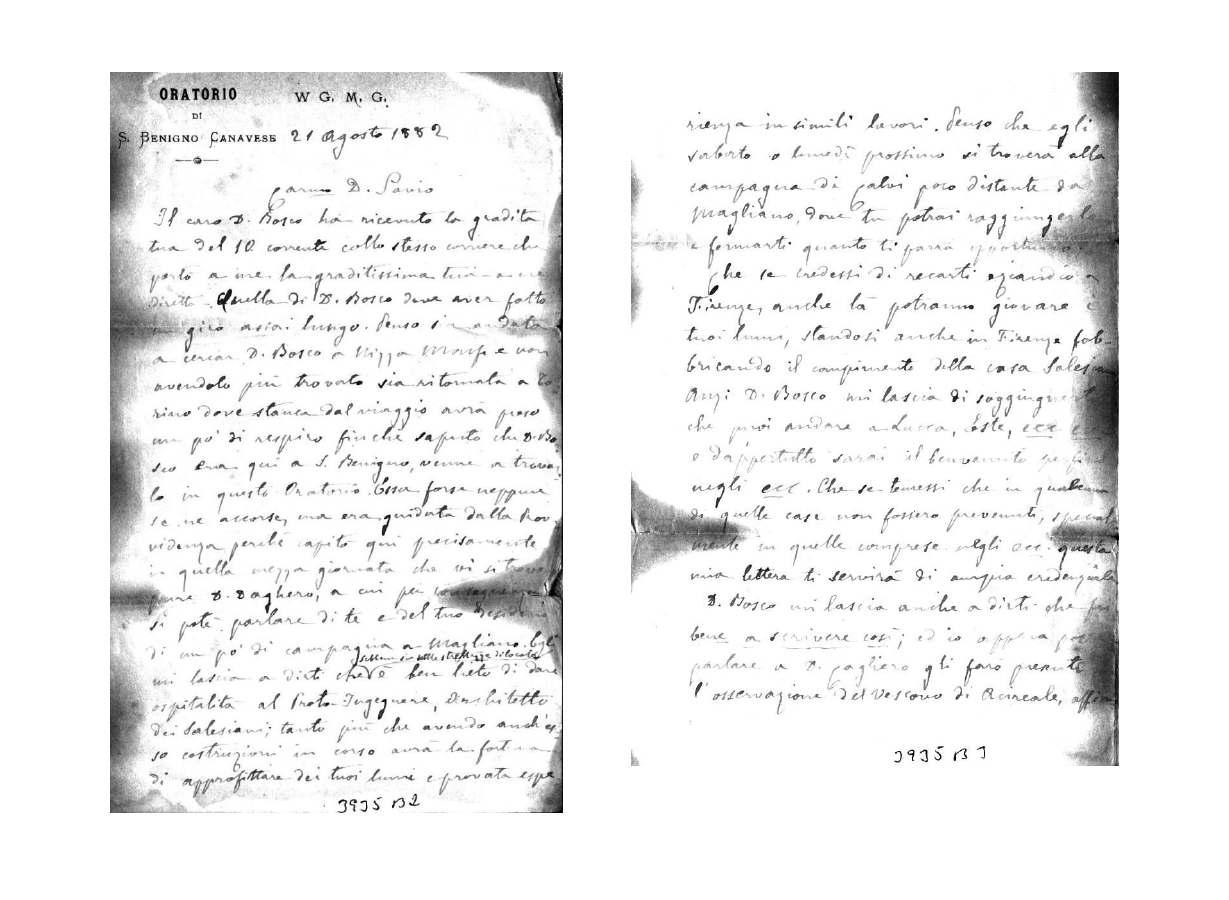 ORATORIO
DI
S. BENIGNO CANAVESE
W G. M. G.
21 Agosto 1882
Carmo D. Savio
Il caro D. Bosco ha ricevuto la gradita
tua del 10 corrente collo stesso corriere che
portò a me la graditissima tua a me
dirett. Quella di D. Bosco deve aver fatto
un giro assai lungo. Penso sia andata
a cercar D. Bosco a Nizza Monf. e non
avendolo più trovato sia ritornata a To-
rino dove stanca dal viaggio avrà preso
un po' di respiro finchè saputo che D. Bo
sco era qui a S. Benigno, venne a trovar
lo in questo Oratorio. Essa forse neppure
se ne accorse, ma era guidata dalla Prov
videnza perchè capitò qui precisamente
in quella mezza giornata che vi si trova
pure D. Daghero, a cui per conseguenza
si potè parlare di te e del tuo desiderio
di un po' di campagna a Magliano. Egli
mi lascia a dirti che è ben lieto di dare
ospitalità al Proto-Ingegnere, Architetto
dei Salesiani; tanto più che avendo anch'es
so costruzioni in corso avrà la fortuna
di approfittare dei tuoi lumi e provata espe
3935 B2
rienza in simili lavori. Penso che egli
sabato o lunedì prossimo si troverà alla
campagna di Calvi poco distante da
Magliano, dove tu potrai raggiungerlo
e fermarti quanto ti parrà opportuno.
Che se credessi di recarti eziandio a
Firenze, anche là potranno giovare i
tuoi lumi, standosi anche in Firenze fab-
bricando il compimento della casa Salesia
Anzi D. Bosco mi lascia di soggiungerti
che puoi andare a Lucca, Este, ecc ecc.
e dappertutto sarai il benvenuto perfino
negli ecc. Che se temessi che in qualcuna
di quelle case non fossero prevenuti, special
mente in quelle comprese negli ecc. questa
mia lettera ti servirà di ampia credenziale
D. Bosco mi lascia anche a dirti che fai
bene a scrivere così; ed io appena potrò
parlare a D. Cagliero gli farò presente
l'osservazione del Vescovo di Acireale, affin
3935 B3